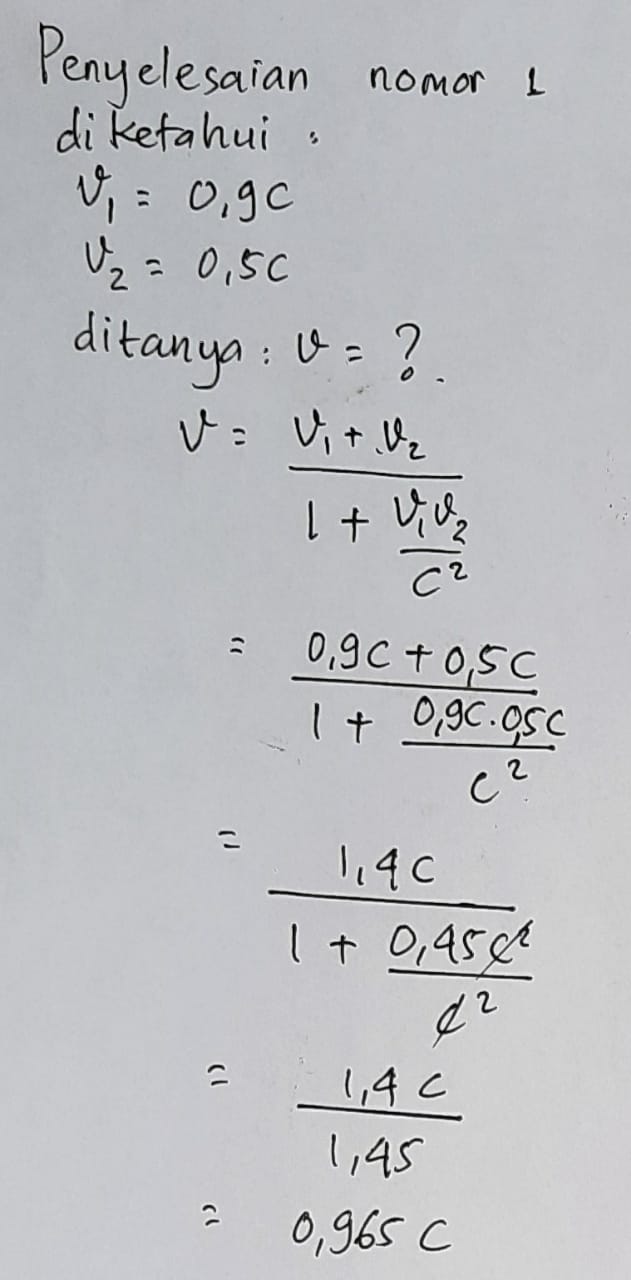 Penyelesaian nomor 1
diketahui :
v₁ = 0,9c
v₂ = 0,5c
ditanya : v = ?
v = v₁ + v₂
1 + v₁v₂
c²
= 0,9c + 0,5c
1 + 0,9c.0,5c
c²
= 1,4c
1 + 0,45c²
c²
= 1,4c
1,45
= 0,965 c